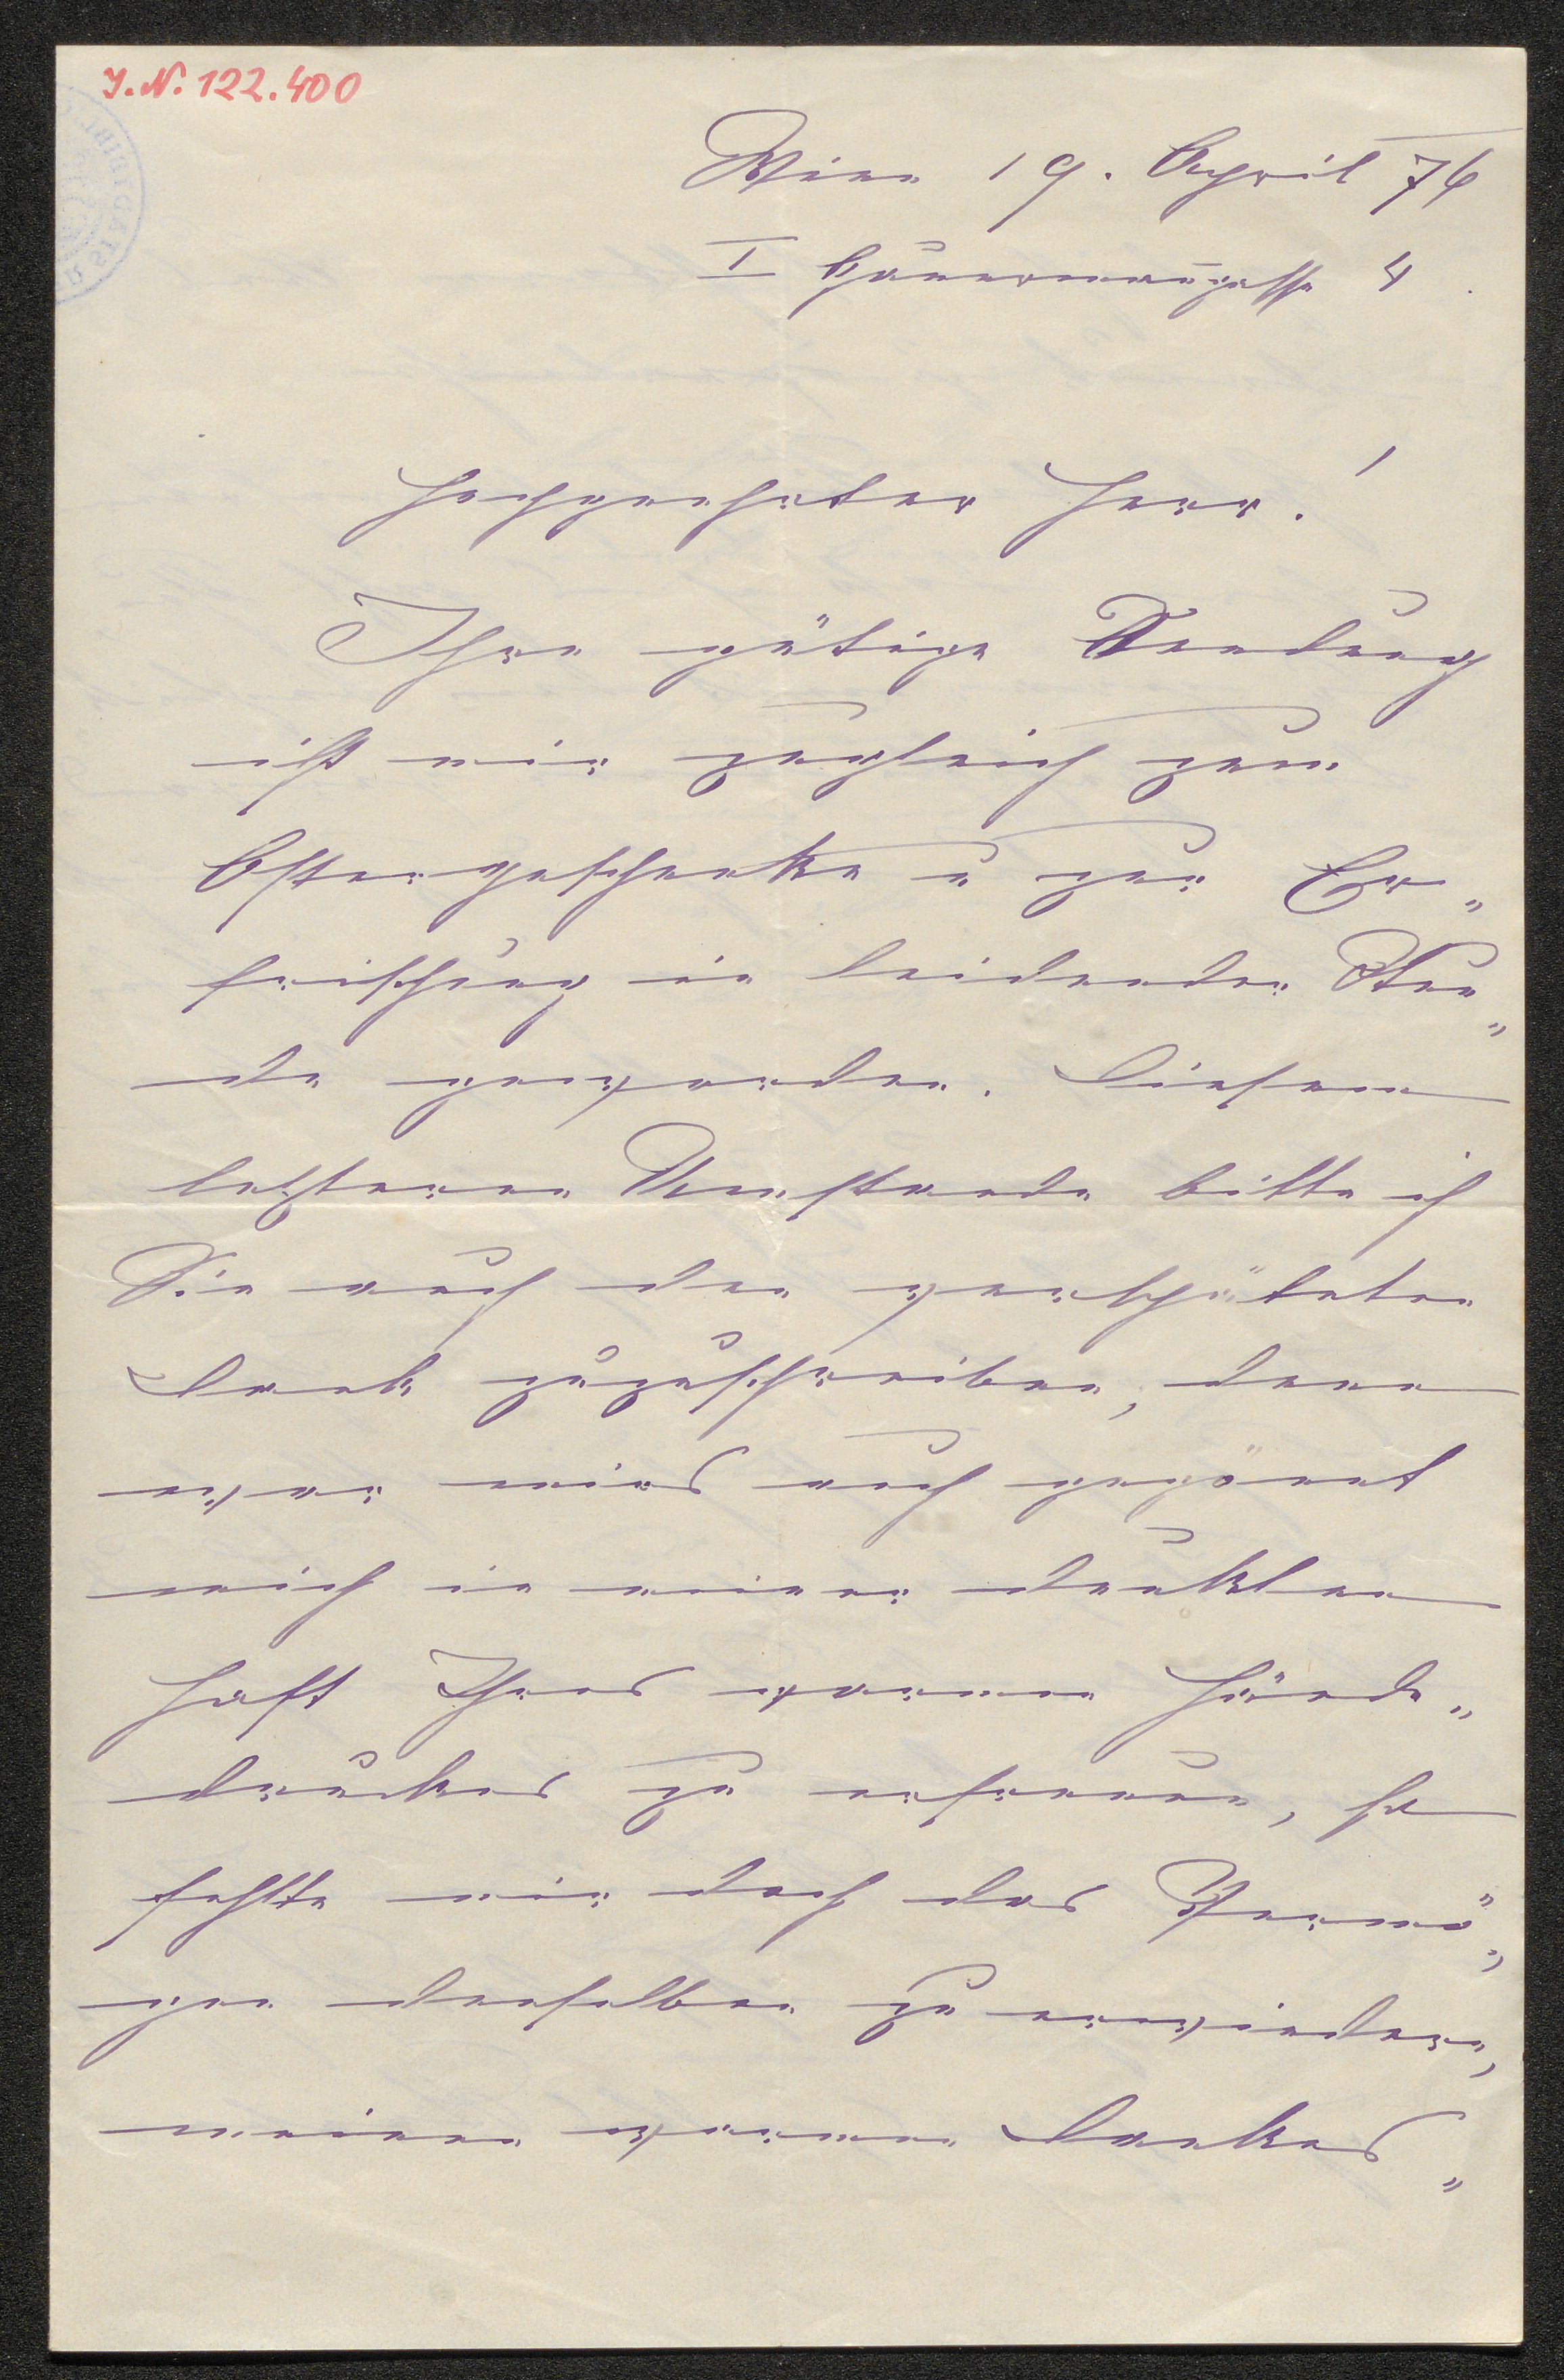 J.N. 122.400
Wien 19. April 76
I Gauermanngasse 4.
Hochgeehrter Herr!
Ihre gütige Sendung
ist mir zugleich zum
Ostergeschenke u zur Er„
frischung in leidender Stun„
de geworden. Diesem
letzteren Umstande bitte ich
Sie auch den verspäteten
Dank zuzuschreiben, denn
war mirs auch gegönnt
mich in meiner dunklen
Haft Ihres warmen Hände„
druckes zu erfreuen, so
fehlte mir doch das Vermö„
gen denselben zu erwiedern,
meinen warmen Dankes„